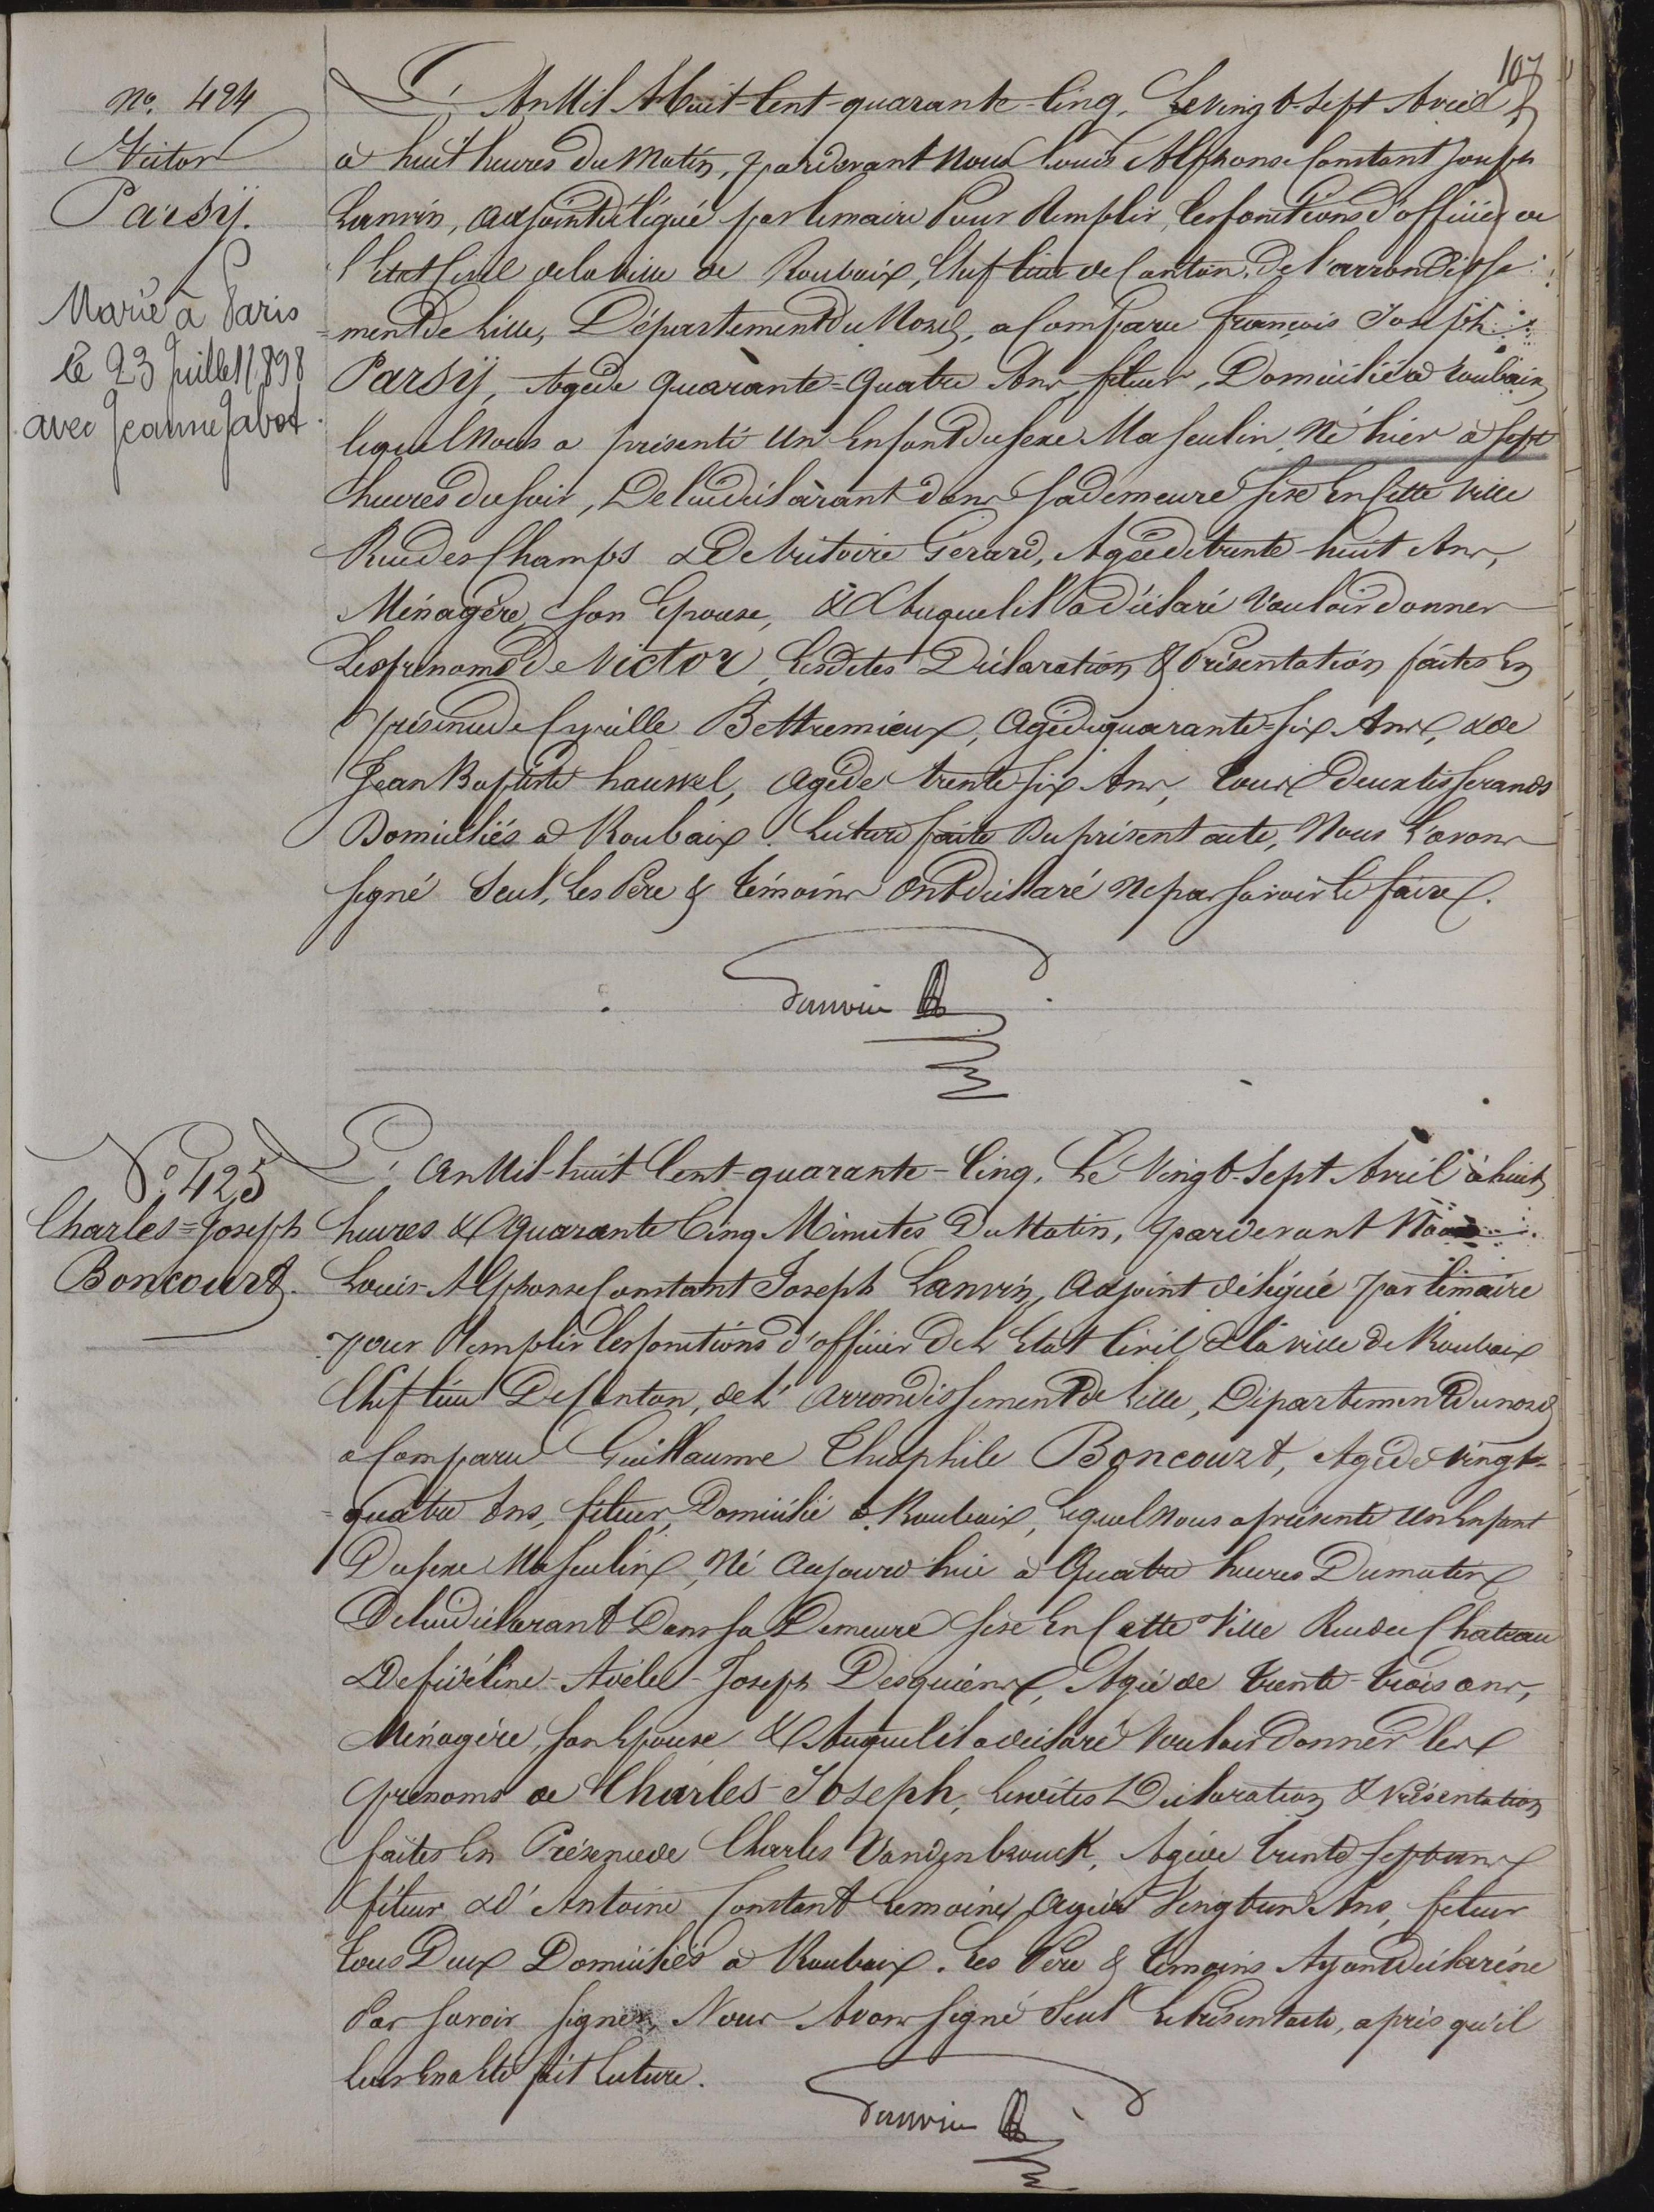 107
No. 424
Victor
Parsÿ.
Marié à Paris
le 23 Juillet 1898
avec Jeanne Jabot.
L'An Mil Huit-Cent-quarante-Cinq, Le vingt-Sept Avril
à huit heures du Matin, pardevant Nous Louis Alphonse Constant Joseph
Lanvin, adjoint délégué par le maire Pour Remplir, les fonctions d'officier de
l'Etat Civil de la ville de Roubaix, Chef lieu de Canton, De l'arrondisse-
ment de Lille, Département du Nord, a Comparu François Joseph
Parsÿ, Agé de quarante-Quatre Ans, fileur, Domicilié à Roubaix
lequel Nous a présenté Un Enfant du sexe Masculin, Né hier à sept
heures du soir, De lui déclarant dans sa demeure sise En Cette ville
Rue des Champs & De Victoire Gerard, Agée de trente-huit Ans,
Ménagère, son Epouse, & Auquel il a déclaré Vouloir donner
Les prénoms De Victor, Lesdites Déclaration & Présentation faites En
présence de Cyrille Bettremieux, Agé de quarante-six Ans, & de
Jean Baptiste hauwel, agé de trente-six Ans, tous deux tisserands
Domiciliés à Roubaix. Lecture faite Du présent acte, Nous L'avons
signé Seul, Les Père & témoins Ont déclaré Ne pas savoir le faire.
Lanvin
No. 425
Charles=Joseph
Boncourt.
L'An Mil-huit Cent-quarante-Cinq, Le Vingt-Sept Avril à huit
heures & Quarante Cinq Minutes Du Matin, pardevant Nous
Louis-Alphonse Constant Joseph Lanvin, Adjoint délégué par le maire
pour Remplir les fonctions d'officier De L'Etat Civil de la ville de Roubaix
Chef lieu De Canton, de L'arrondissement de Lille, Département du nord
a Comparu Guillaume Theophile Boncourt, Agé de Vingt-
quatre Ans, fileur, Domicilié à Roubaix, lequel Nous a présenté Un Enfant
Du sexe Masculin, Né Aujourd'hui à Quatre heures Du matin
De lui déclarant Dans sa Demeure sise En Cette Ville Rue du Chateau
& De fidéline-Adèle-Joseph Desquiens, Agée de trente-trois ans,
Ménagère, son Epouse & Auquel il a déclaré Vouloir Donner les
prénoms de Charles-Joseph, Lesdites Déclaration & Présentation
faites En Présence de Charles Vandenbrouck, Agé de trente sept ans
fileur & d'Antoine Constant Lemoine, agé de Vingt un Ans, fileur
tous Deux Domiciliés à Roubaix. Les Père & témoins Ayant déclaré ne
Pas savoir signer, Nous Avons signé Seul Le présent acte, après qu'il
Leur En a Eté fait Lecture.
Lanvin